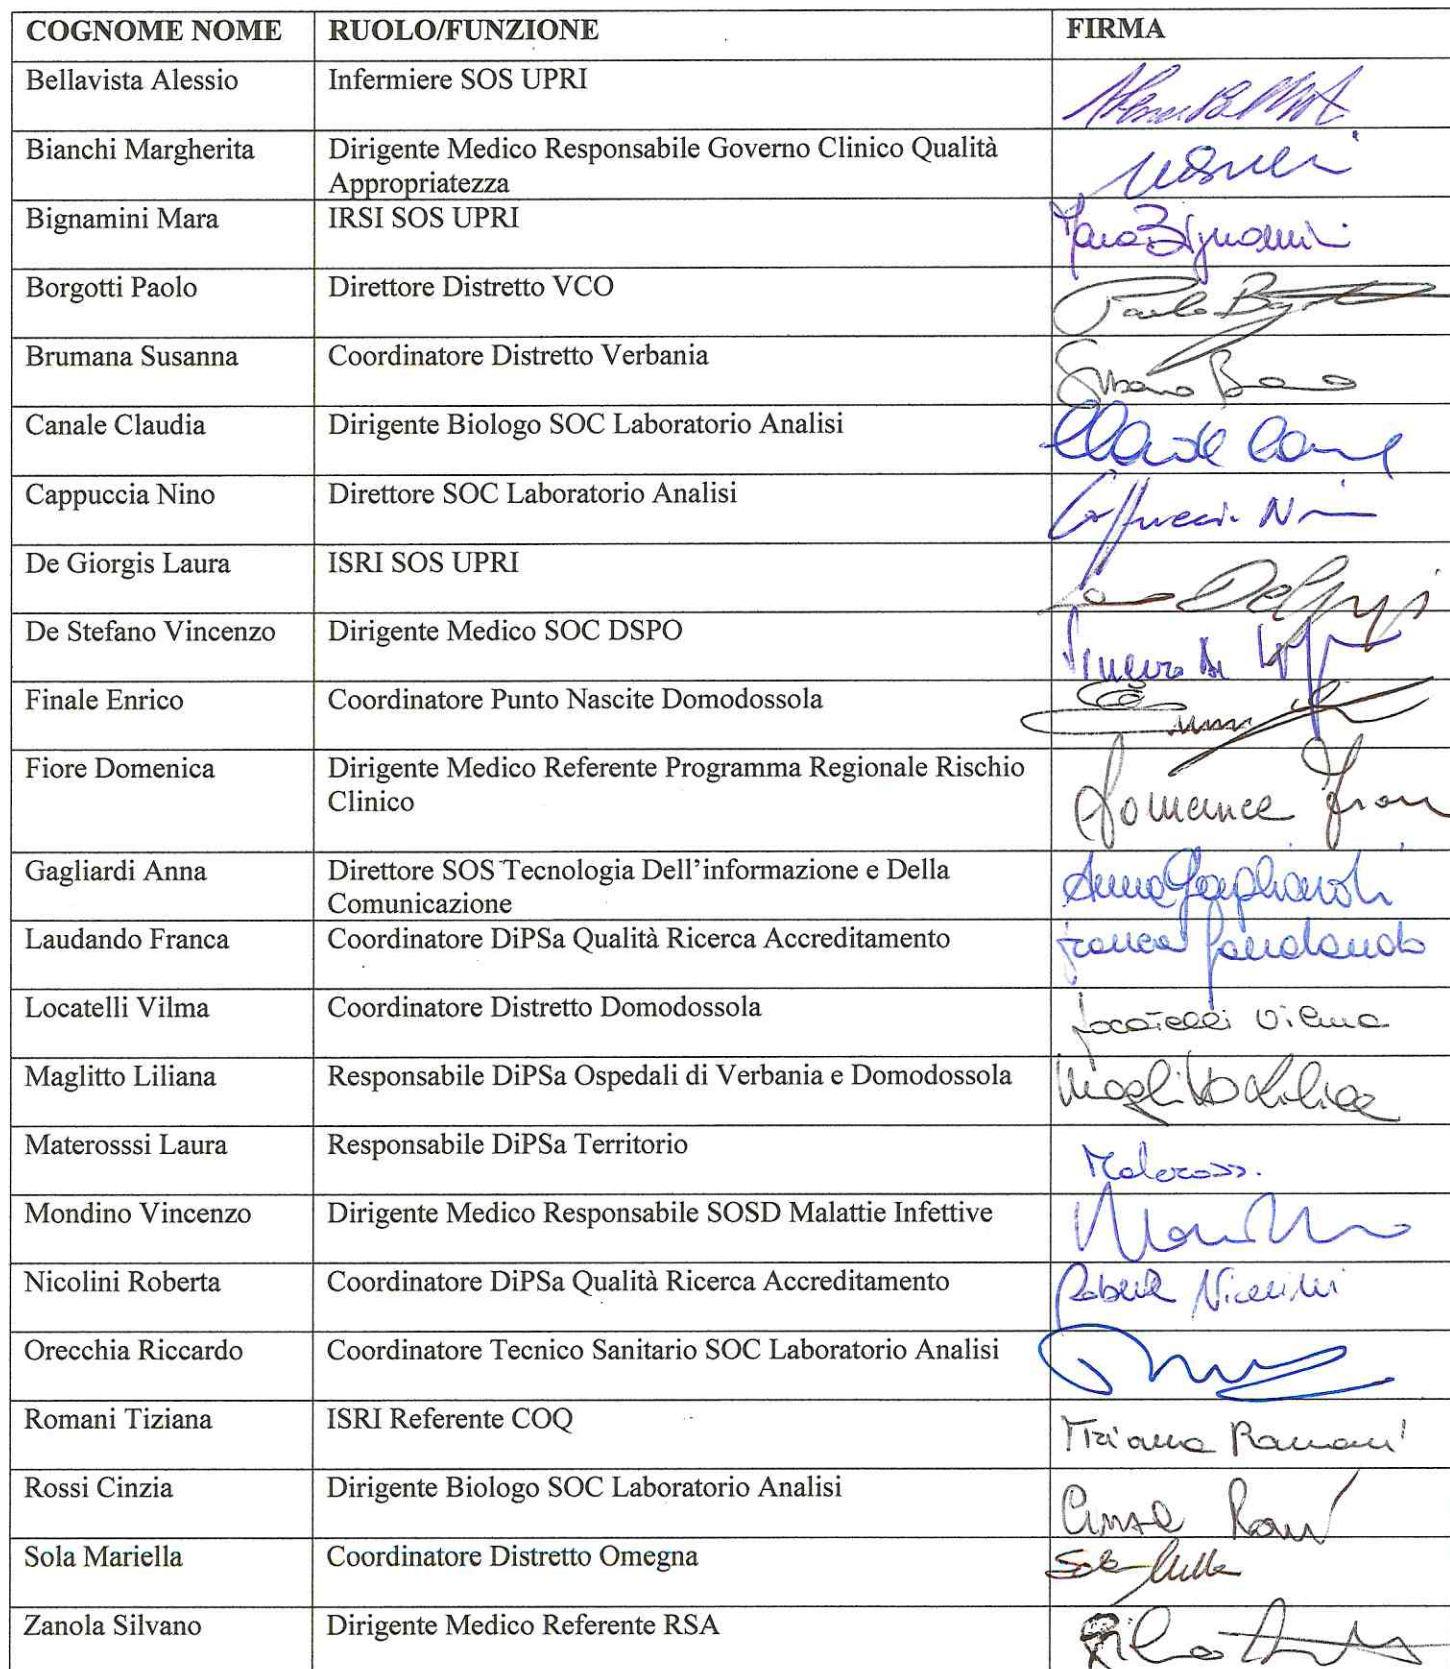 COGNOME NOME RUOLO/FUNZIONE FIRMA
Bellavista Alessio Infermiere SOS UPRI
Bianchi Margherita Dirigente Medico Responsabile Governo Clinico Qualità
Appropriatezza
Bignamini Mara IRSI SOS UPRI Mara Bignamini
Borgotti Paolo Direttore Distretto VCO Paolo
Brumana Susanna Coordinatore Distretto Verbania Susanna
Canale Claudia Dirigente Biologo SOC Laboratorio Analisi
Cappuccia Nino Direttore SOC Laboratorio Analisi Cappuccia
De Giorgis Laura ISRI SOS UPRI
De Stefano Vincenzo Dirigente Medico SOC DSPO Vincenzo De
Finale Enrico Coordinatore Punto Nascite Domodossola
Fiore Domenica Dirigente Medico Referente Programma Regionale Rischio
Clinico
Domenica Fiore
Gagliardi Anna Direttore SOS Tecnologia Dell'informazione e Della
Comunicazione
Anna Gagliardi
Laudando Franca Coordinatore DiPSa Qualità Ricerca Accreditamento Franca Laudando
Locatelli Vilma Coordinatore Distretto Domodossola Locatelli Vilma
Maglitto Liliana Responsabile DiPSa Ospedali di Verbania e Domodossola Maglitto Liliana
Materosssi Laura Responsabile DiPSa Territorio
Mondino Vincenzo Dirigente Medico Responsabile SOSD Malattie Infettive
Nicolini Roberta Coordinatore DiPSa Qualità Ricerca Accreditamento Roberta Nicolini
Orecchia Riccardo Coordinatore Tecnico Sanitario SOC Laboratorio Analisi
Romani Tiziana ISRI Referente COQ Tiziana Romani
Rossi Cinzia Dirigente Biologo SOC Laboratorio Analisi Cinzia Rossi
Sola Mariella Coordinatore Distretto Omegna Sola
Zanola Silvano Dirigente Medico Referente RSA